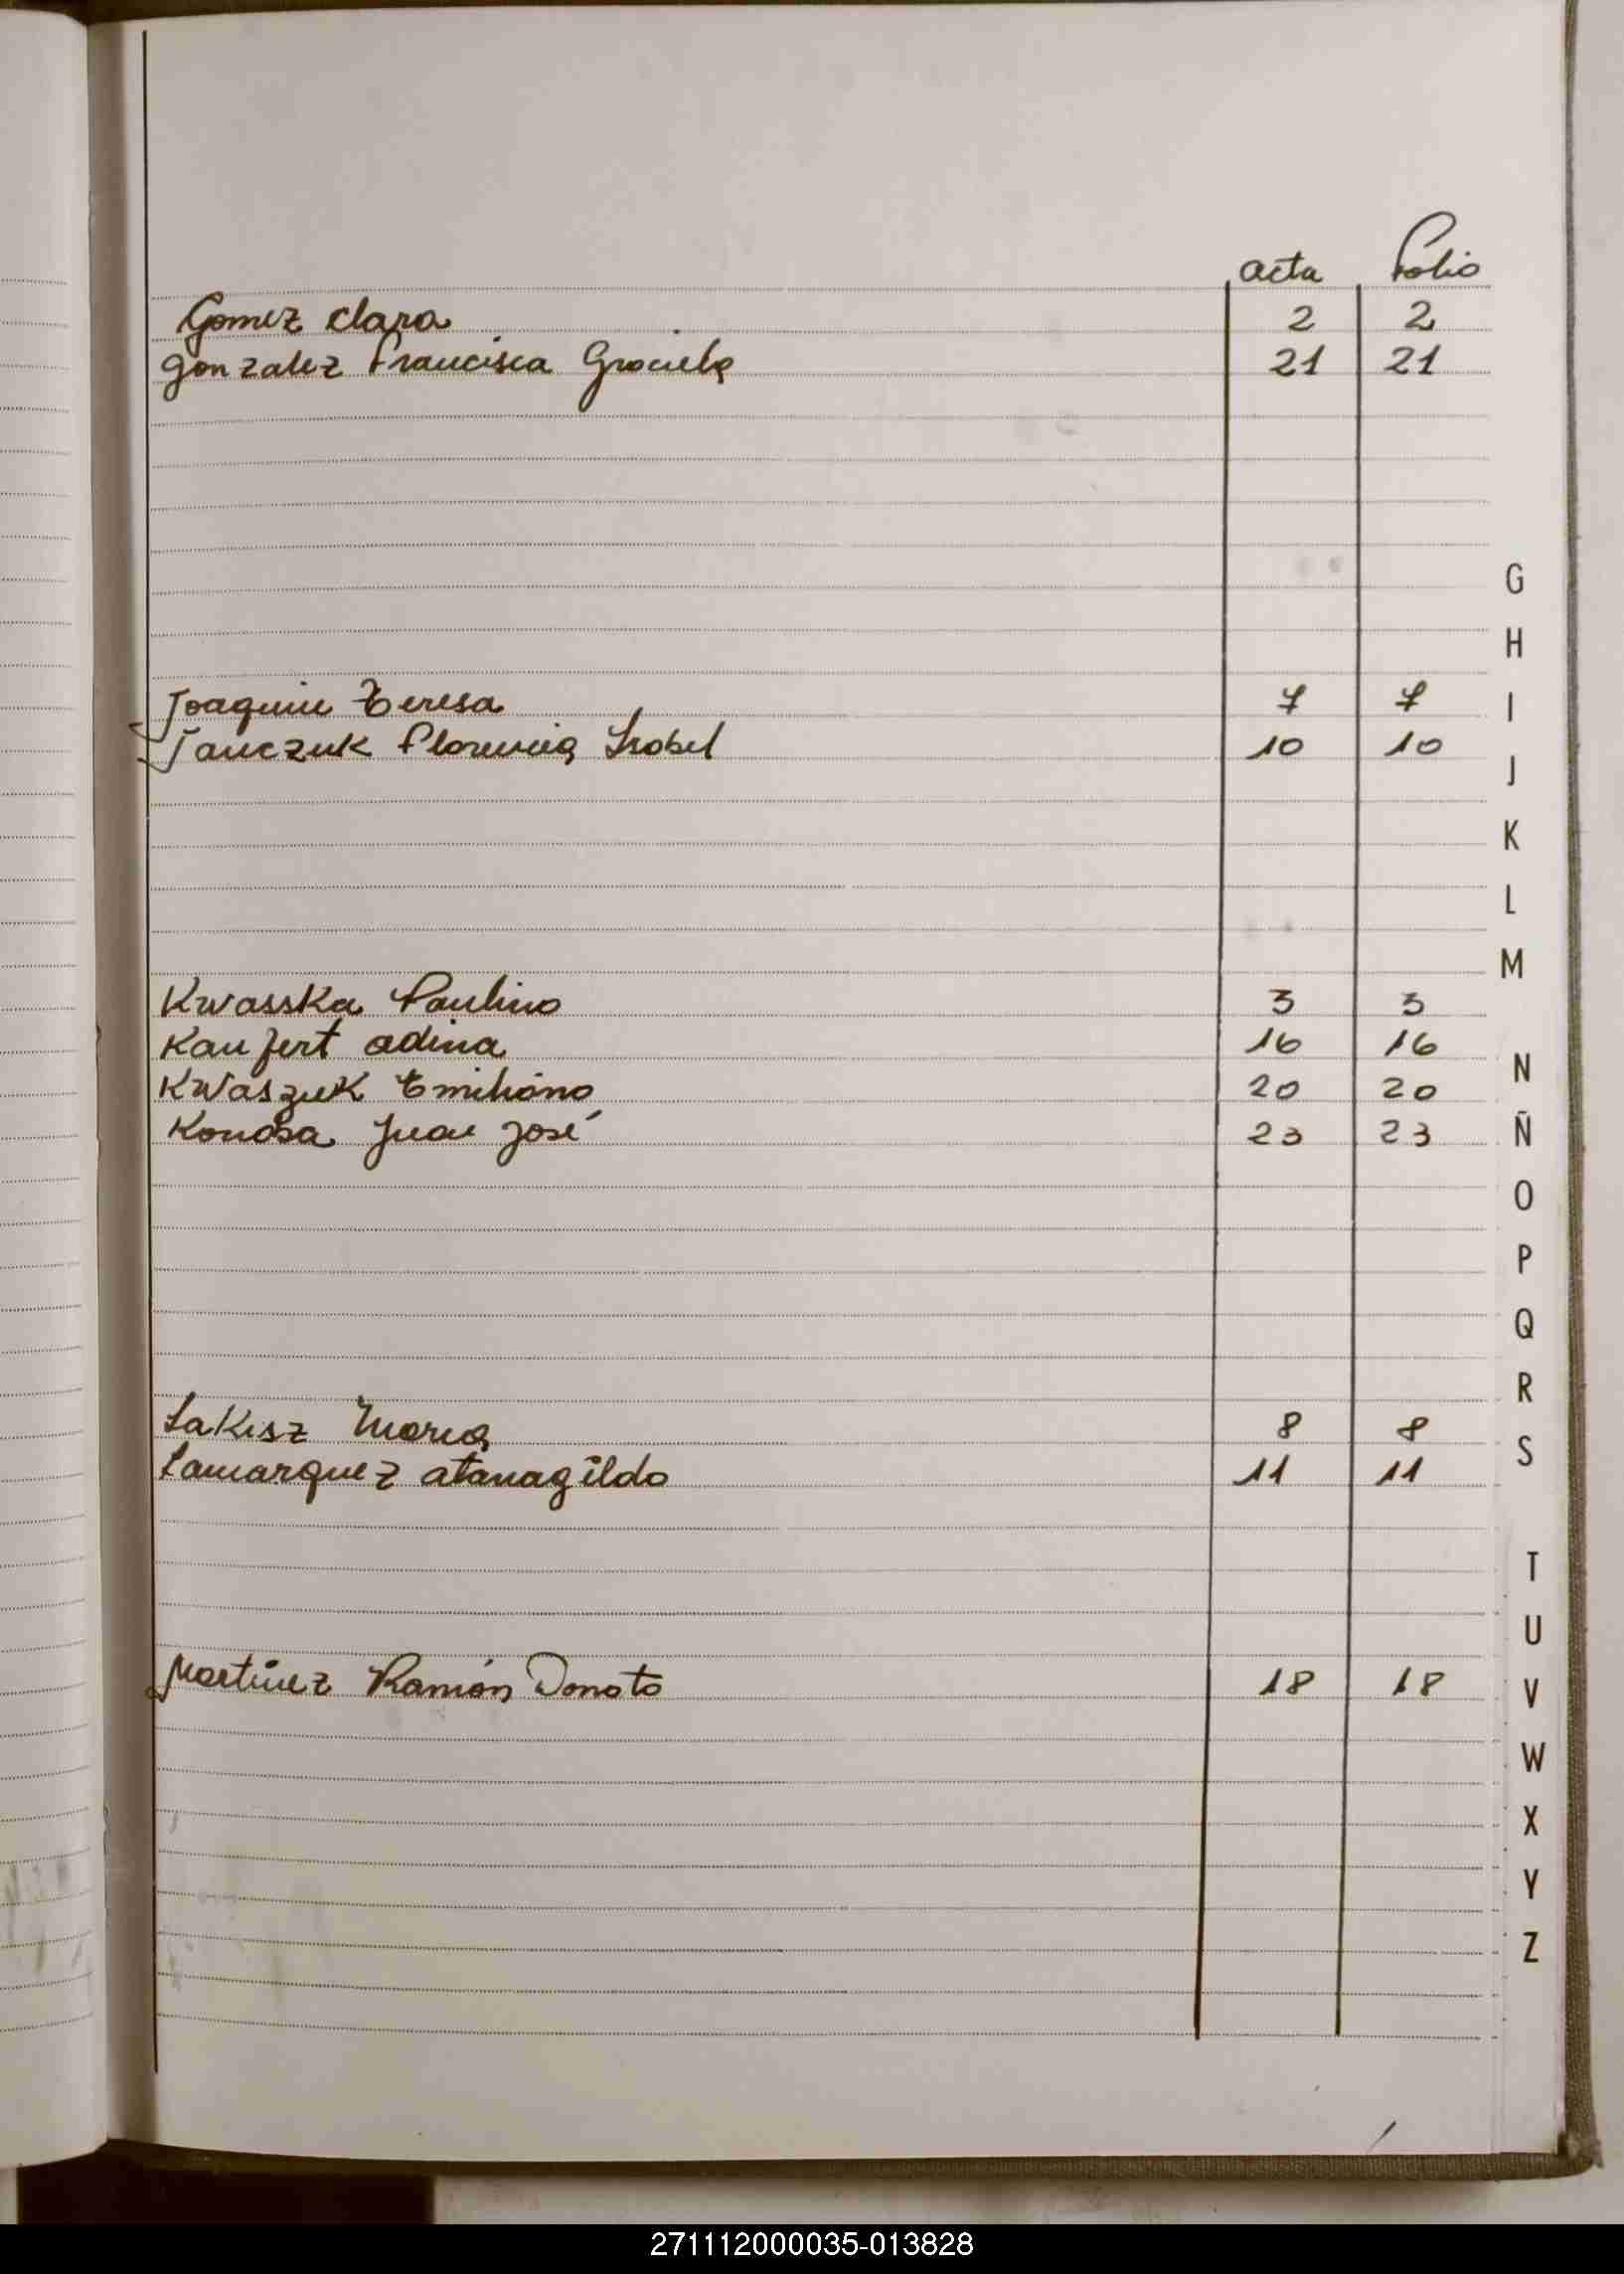 acta Folio
Gomez Clara 2 2
Gonzalez Francisca Graciela 21 21
G
H
Joaquin Teresa 7 7
I
Janczuk Florencia Isabel 10 10
J
K
L
M
Kwasska Paulino 3 3
Kaufert adina 16 16
N
Kwaszuk Emiliano 20 20
Konosa Juan José 23 23
Ñ
O
P
Q
R
Lakisz Maria 8 8
S
Lamarquez atanagildo 11 11
T
U
Martinez Ramón Donato 18 18
V
W
X
Y
Z
271112000035-013828